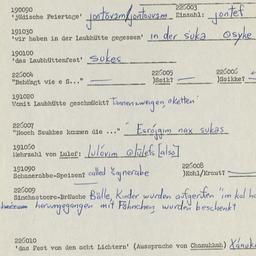 190090 226003
'jüdische Feiertage' jontovəm/jontauvəm Einzahl: jontef
191030
'wir haben in der Laubhütte gegessen' in der suka
190100
'das Laubhüttenfest' sukes
225004 225005 225006
"Behängt wie e S..." )Seit? )Seike?
191020
Womit Laubhütte geschmückt? Tannenzweigen,
226007
"Nooch Suukkes kummen die ..." nax sukas
191060
Mehrzahl von Lulef: lulóvim [also]
191090 226008
Schnaerabbe-Speisen? called )Kohl/Kraut?
226009
Simchastoore-Bräuche Bälle, Kinder wurden aufgerufen "im kol
herumgegangen mit Fähnchen, wurden beschenkt
226010
'das Fest von den acht Lichtern' (Aussprache von Chanukkah)